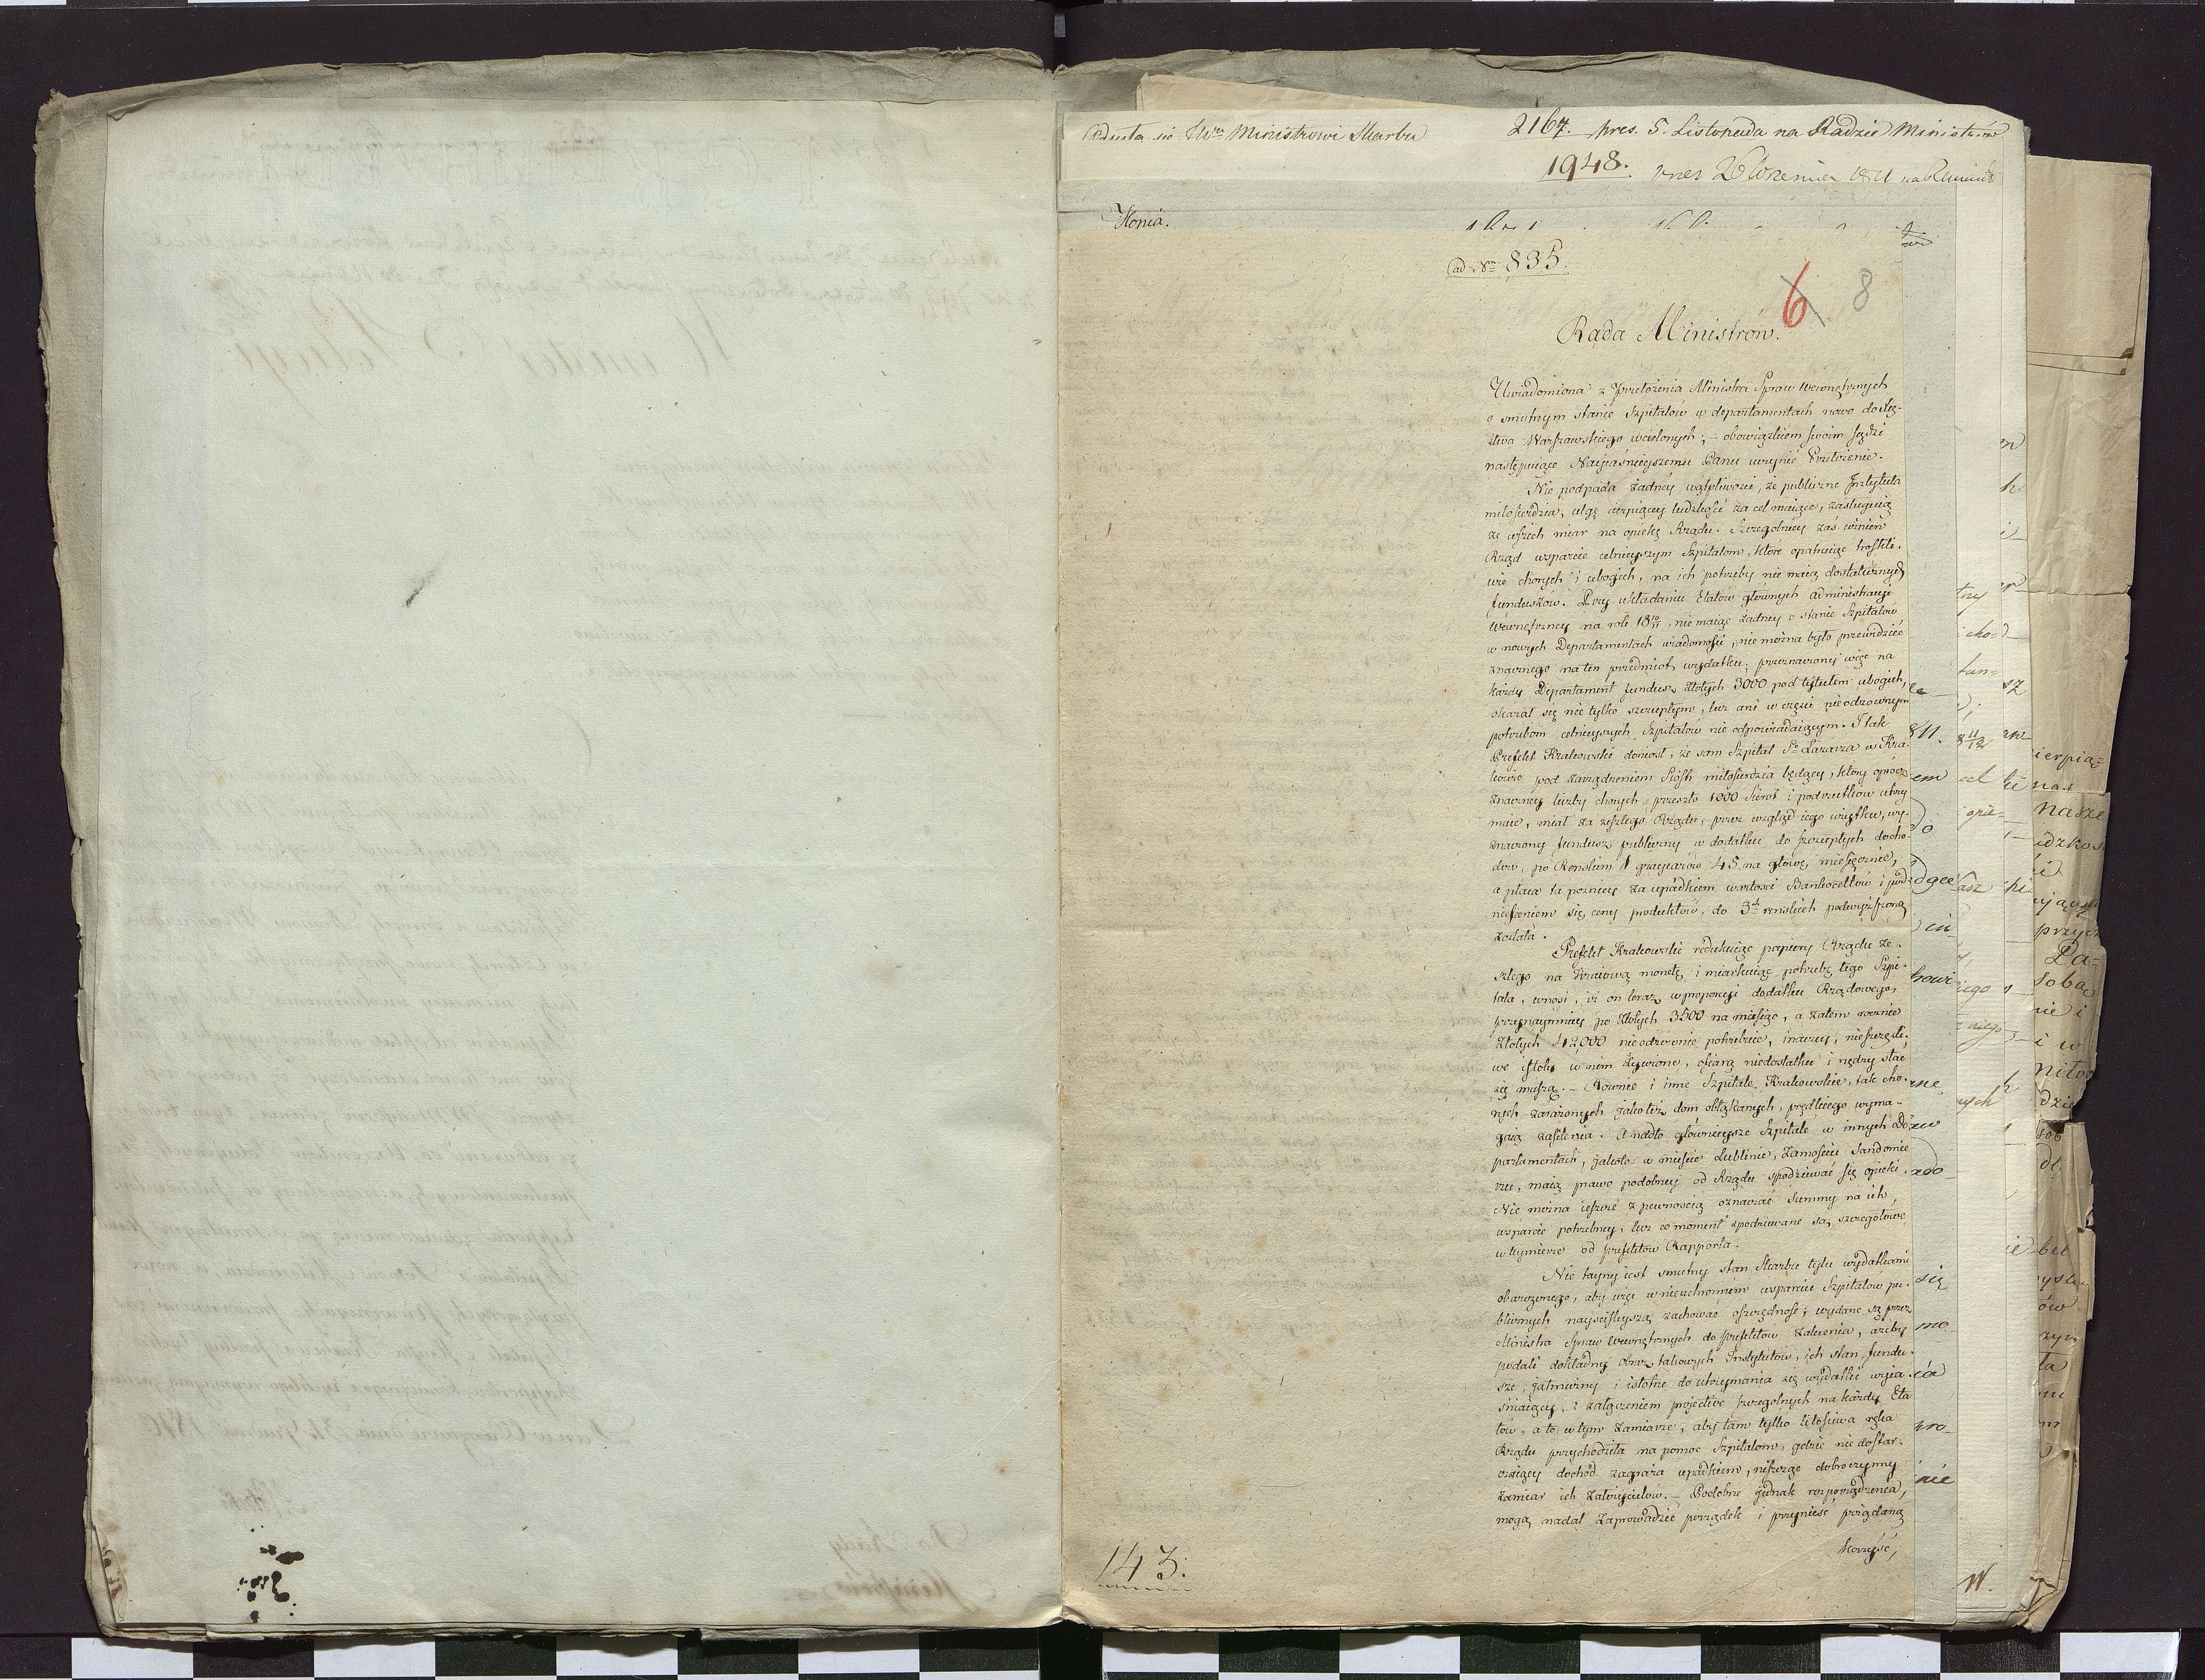 Odseła się JWu Ministrowi Skarbu 2167. pres. 5. Listopada na Radzie Ministrów
1948. pres 26 Wrzesnia 1811 na R
Kopia.
ad Nm 835.
6 8
Rada Ministrów.
Uwiadomiona z Przełożenia Ministra Spraw wewnętrznych
o smutnym stanie Szpitalów w departamentach nowo do Xię-
ztwa Warszawskiego wcielonych; – obowiązkiem swoim sądzi
następuiące Nayiaśnieyszemu Panu uczynić Przełożenie.
Nie podpada żadney wątpliwości, że publiczne Instytuta
miłosierdzia, ulgę cierpiącey ludzkości za cel maiące, zasługuią
ze wszech miar na opiekę Rządu. Szczegolniey zaś winien
Rząd wsparcie celnieyszym Szpitalom, które opatruiąc troskli-
wie chorych i ubogich, na ich potrzeby nie maią dostatecznych
funduszów. Przy układaniu Etatów głównych administracyi
wewnętrzney na rok 18 10/11, nie maiąc żadney o stanie Szpitalów
w nowych Departamentach wiadomości, nie można było przewidzieć
znacznego na ten przedmiot wydatku; przeznaczony więc na
każdy Departament fundusz Złotych 3000 pod tytułem ubogich,
okazał się nie tylko szczupłym, lecz ani w części nieodzownym
potrzebom celnieyszych Szpitalów nie odpowiadaiącym. I tak
Prefekt Krakowski doniosł, że sam Szpital So Lazarza w Kra-
kowie pod zarządzeniem Siostr miłosierdzia będący, który oprocz
znaczney liczby chorych, przeszło 1000 Sierot i podrzutków utrzy
muie, miał za zeszłego Rządu, przez wzgląd iego użytku, wy-
znaczony fundusz publiczny w dodatku do szczupłych docho-
dow, po Renskim 1 graycarów 45 na głowę, miesięcznie,
a płaca ta pozniey za upadkiem wartosci Bankocetlów i pod-
niesieniem się ceny produktów, do 3ch renskich podwyższoną
została.
Prefekt Krakowski redukuiąc papiery Rządu ze-
szłego na Kraiową monetę i miarkuiąc potrzebę tego Szpi-
tala, wnosi, iż on teraz w proporcyi dodatku Rządowego,
przynaymniey po Złotych 3500 na miesiąc, a zatem rocznie
Złotych 42,000 nieodzownie potrzebuie, inaczey, nieszczęśli-
we istoty w nim żywione, ofiarą niedostatku i nędzy stać
się muszą. – Rownie i inne Szpitale Krakowskie, tak cho-
rych zarażonych jako też dom obłąkanych, prędkiego wyma-
gaią zasilenia. A nadto główniejsze Szpitale w innych De-
partamentach, jakoto: w mieście Lublinie, Zamościu Sandomie
rzu, maią prawo podobney od Rządu spodziewać się opieki.
Nie można ieszcze z pewnością oznaczać Summy na ich
wsparcie potrzebney, lecz co moment spodziewane są, szczegółowe
w tey mierze od prefektów Rapporta.
Nie tayny iest smutny stan Skarbu tylu wydatkami
obarczonego, aby więc w nieuchronnem wsparciu Szpitalów pu-
blicznych nayściśleyszą zachować oszczędność; wydane są przez
Ministra Spraw wewnętrznych do prefektów zalecenia, ażeby
podali dokładny obraz takowych Instytutów, ich stan, fundu-
sze, jałmużny i istotne do utrzymania się wydatki wyia-
śniaiący, z załączeniem projektów szczegolnych na każdy Eta
tów, a to w tym zamiarze, aby tam tylko litościwa ręka
Rządu przychodziła na pomoc Szpitalom, gdzie niedostar-
czaiący dochód zagraża upadkiem, niszcząc dobroczynny
zamiar ich założycielów. – Podobne jednak rozporządzenia,
mogą nadal zaprowadzić porządek i przynieść pożądaną
korzyść,
143.